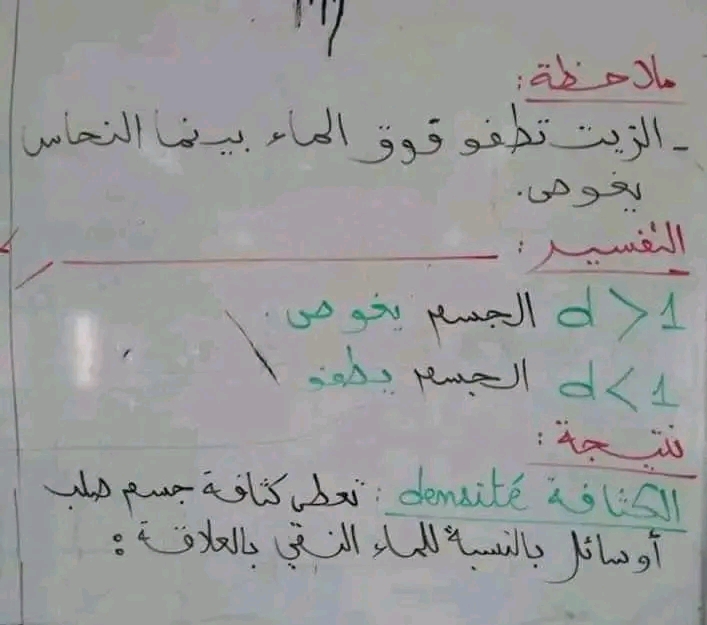 ملاحظة:
- الزيت تطفو فوق الماء بينما النحاس
يغوص.
التفسير:
d > 1 الجسم يغوص.
d < 1 الجسم يطفو
نتيجة:
الكثافة densité: تعطى كثافة جسم صلب
أو سائل بالنسبة للماء النقي بالعلاقة: